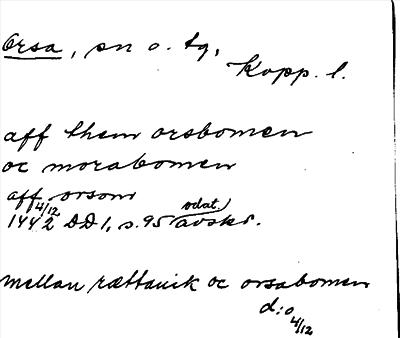 Orsa, sn o. tg,
Kopp. l.
aff them orsbomen
oc morabomen
aff orsom
4/12 odat.)
1442 DD 1, s. 95 avskr.
mellan rættauik oc orsabomen
d:o
4/12